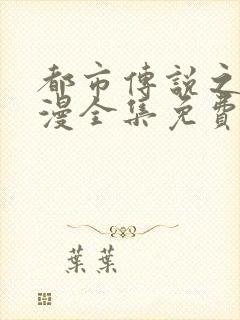 都市傳說之
漫全集免費
葉葉